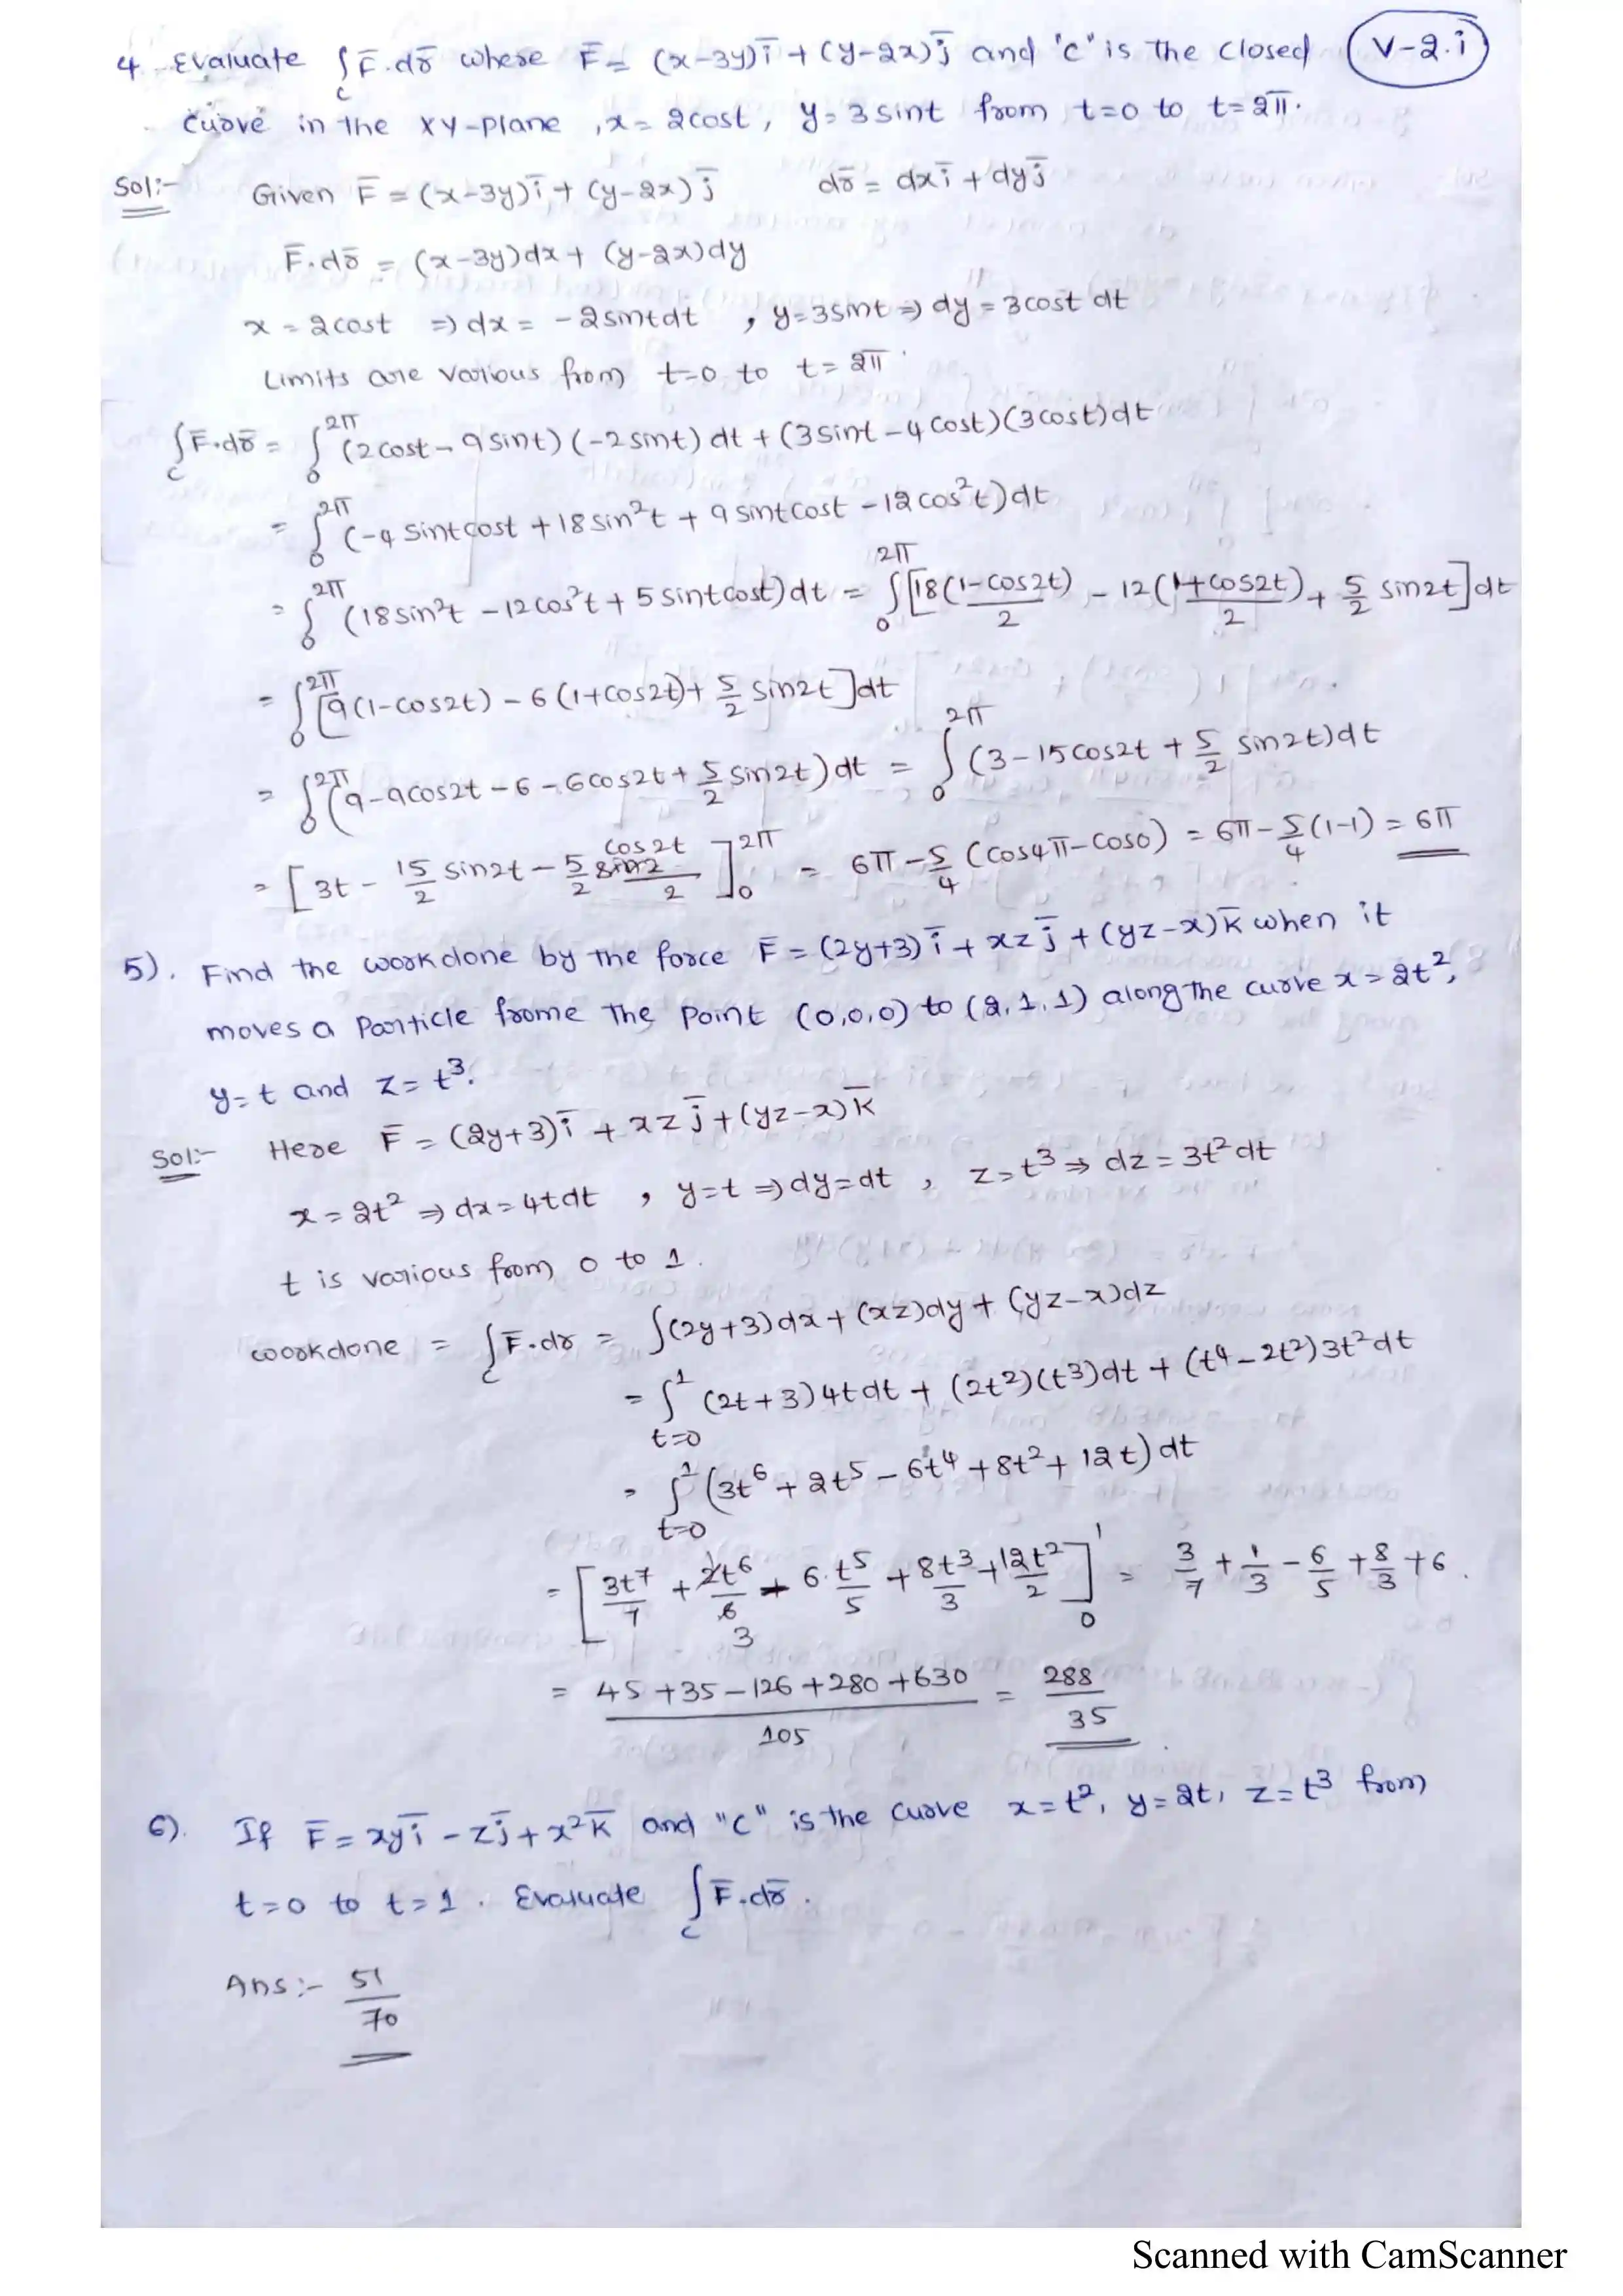 4. Evaluate ∫_C F̄.dr̄ where F̄ = (x-3y)ī + (y-2x)j̄ and 'C" is the closed V-2.i
curve in the xy-plane, x = 2cost, y = 3 sint from t=0 to t=2π.
Sol:- Given F̄ = (x-3y)ī + (y-2x)j̄ dr̄ = dxī + dyj̄
F̄.dr̄ = (x-3y)dx + (y-2x)dy
x = 2cost ⇒ dx = -2sintdt , y=3sint ⇒ dy = 3cost dt
Limits are various from t=0 to t=2π
∫_C F̄.dr̄ = ∫_0^{2π} (2cost - 9sint)(-2sint)dt + (3sint - 4cost)(3cost)dt
= ∫_0^{2π} (-4sintcost + 18sin²t + 9sintcost - 12cos²t)dt
= ∫_0^{2π} (18sin²t - 12cos²t + 5sintcost)dt = ∫_0^{2π} [18(1-cos2t)/2 - 12(1+cos2t)/2 + 5/2 sin2t]dt
= ∫_0^{2π} [9(1-cos2t) - 6(1+cos2t) + 5/2 sin2t]dt
= ∫_0^{2π} (9-9cos2t - 6 - 6cos2t + 5/2 sin2t)dt = ∫_0^{2π} (3-15cos2t + 5/2 sin2t)dt
= [3t - 15/2 sin2t - 5/2 cos2t/2]_0^{2π} = 6π - 5/4 (cos4π - cos0) = 6π - 5/4(1-1) = 6π
5). Find the workdone by the force F̄ = (2y+3)ī + xzj̄ + (yz-x)k̄ when it
moves a particle frome the point (0,0,0) to (2,1,1) along the curve x=2t²,
y=t and z=t³.
Sol:- Here F̄ = (2y+3)ī + xzj̄ + (yz-x)k̄
x = 2t² ⇒ dx = 4tdt , y=t ⇒ dy=dt , z=t³ ⇒ dz = 3t²dt
t is various from 0 to 1.
workdone = ∫_C F̄.dr = ∫(2y+3)dx + (xz)dy + (yz-x)dz
= ∫_{t=0}^1 (2t+3)4tdt + (2t²)(t³)dt + (t⁴-2t²)3t²dt
= ∫_{t=0}^1 (3t⁶ + 2t⁵ - 6t⁴ + 8t² + 12t)dt
= [3t⁷/7 + 2t⁶/6 3 - 6.t⁵/5 + 8t³/3 + 12t²/2]_0^1 = 3/7 + 1/3 - 6/5 + 8/3 + 6.
= (45+35-126+280+630)/105 = 288/35
6). If F̄ = xyī - zj̄ + x²k̄ and "C" is the curve x=t², y=2t, z=t³ from
t=0 to t=1. Evaluate ∫_C F̄.dr̄.
Ans:- 51/70
Scanned with CamScanner